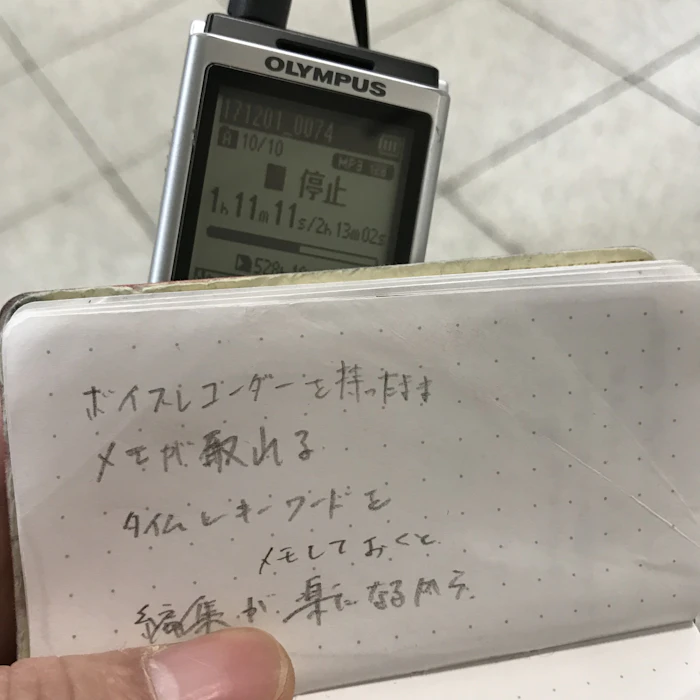 OLYMPUS
171201_0074
A 10/10
MP3 128
停止
1h 11m 11s/2h 13m 02s
528h
ボイスレコーダーを持ったまま
メモが取れる
タイムとキーワードを
メモしておくと
編集が楽になるカラ